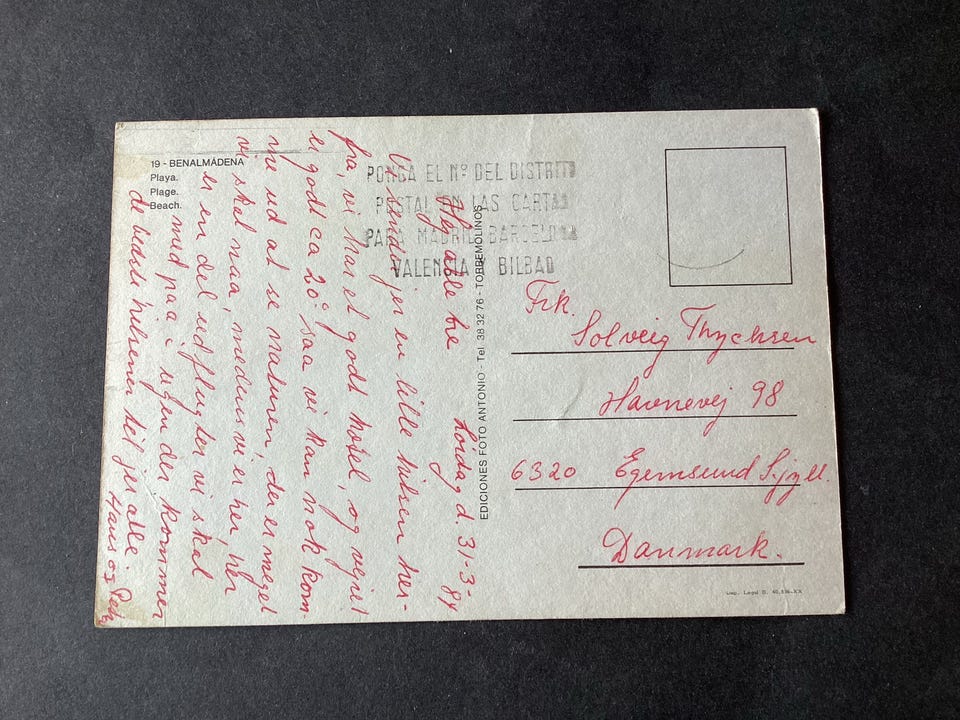 19 - BENALMÁDENA
Playa.
Plage.
Beach.
PONGA EL Nº DEL DISTRITO
POSTAL EN LAS CARTAS
PARA MADRID BARCELONA
VALENCIA Y BILBAO
EDICIONES FOTO ANTONIO - Tel. 38 32 76 - TORREMOLINOS
Lørdag d. 31-3-84
alle tre
Vi jer en lille hilsen her-
fra, vi har et godt hotel, og vejret
er godt ca 20° saa vi kan nok kom-
me ud at se naturen, der er meget
vi skal naa, medens vi er her, her
er en del udflugter vi skal
med paa i ugen der kommer
de bedste hilsener til jer alle.
Hans og
Frk.
Solveig Thychsen
Havnevej 98
6320 Egernsund S.jyll.
Danmark.